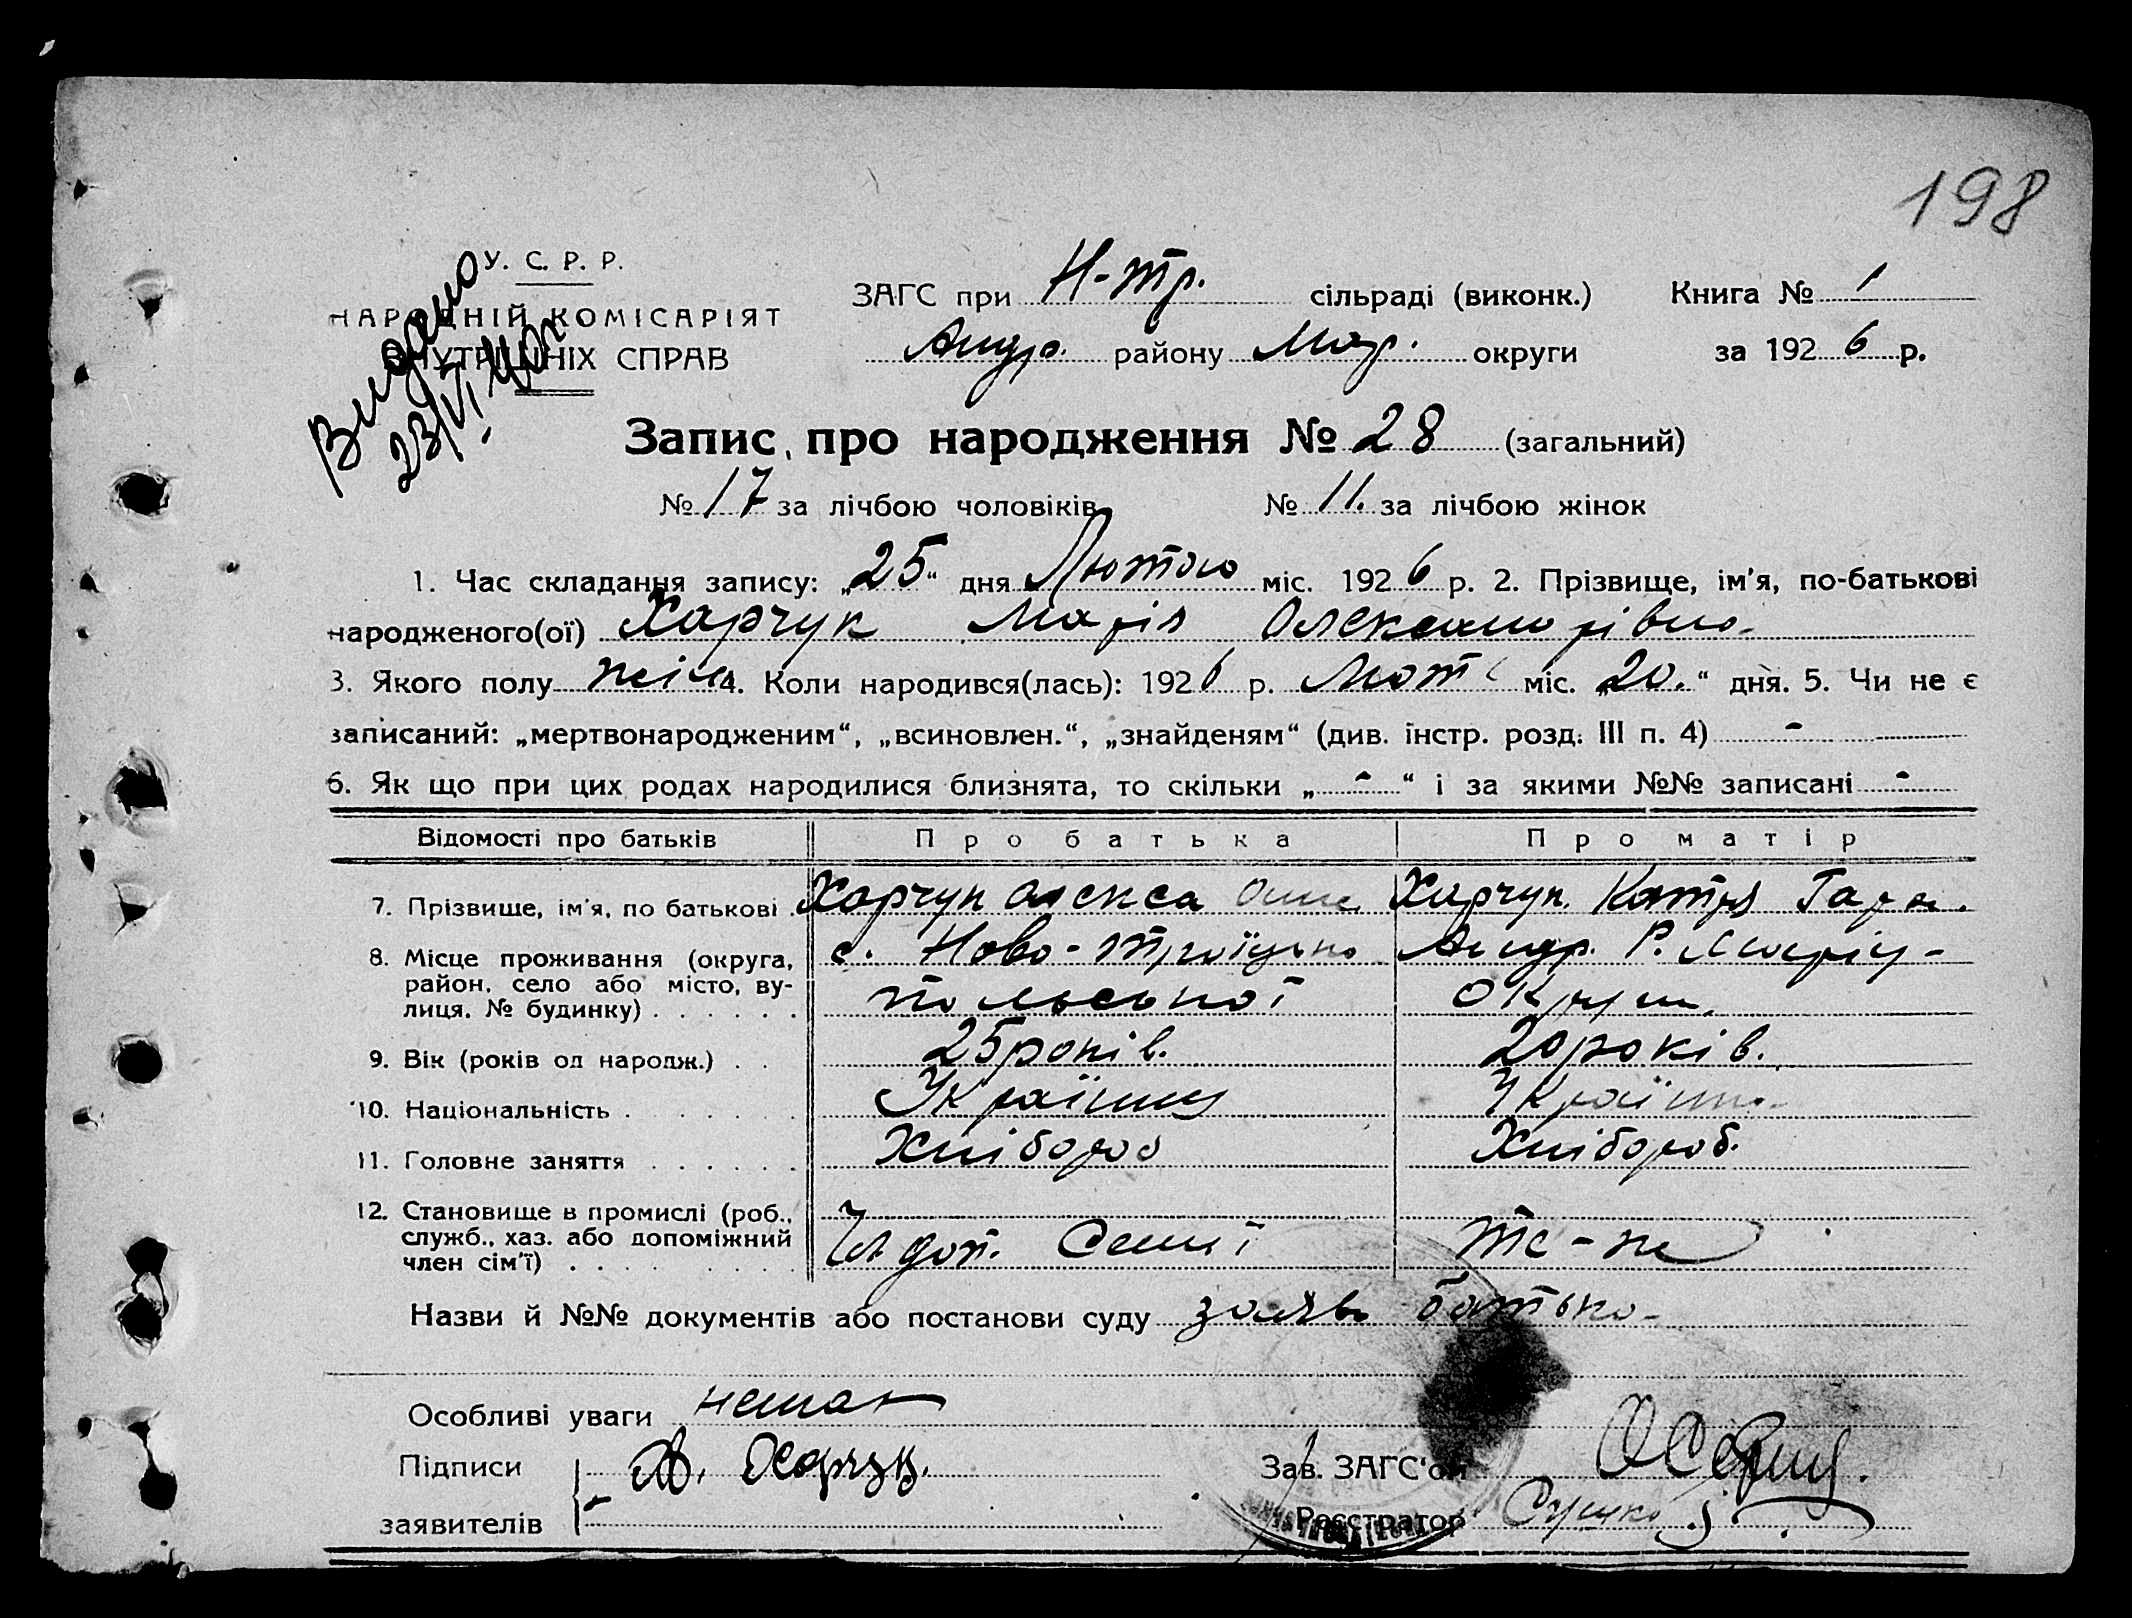 198
У. С. Р. Р.
НАРОДНІЙ КОМІСАРІЯТ
ВНУТРІШНІХ СПРАВ
Видано
23/VI 40г
ЗАГС при Н-Тр. сільраді (виконк.) Книга № 1
Андр. району Мар. округи за 1926 р.
Запис про народження № 28 (загальний)
№ 17 за лічбою чоловіків № 11. за лічбою жінок
1. Час складання запису: „25“ дня Лютого міс. 1926 р. 2. Прізвище, ім'я, по-батькові
народженого(ої) Харчук Марія Олександрівна.
3. Якого полу жін 4. Коли народився(лась): 1926 р. Лют міс. „20.“ дня. 5. Чи не є
записаний: „мертвонародженим“, „всиновлен.“, „знайденям“ (див. інстр. розд. III п. 4) -
6. Як що при цих родах народилися близнята, то скільки „ - “ і за якими №№ записані -
Відомості про батьків Про батька Про матір
7. Прізвище, ім'я, по батькові . Харчук Олекса Харчук Катря Гара.
8. Місце проживання (округа, район, село або місто, вулиця, № будинку) . . . . . . с. Ново-Троїцько Андр. Р. Маріу-
польської Округи.
9. Вік (років од народж.) . . 25 років. 20 років.
10. Національність . . . . . Українец Українка
11. Головне заняття . . . . . . Хлібороб Хлібороб.
12. Становище в промислі (роб., служб., хаз. або допоміжний член сім'ї) . . . . . . . . Чл доп. Семії те-ж
Назви й №№ документів або постанови суду заява батька-
Особливі уваги немає
Підписи А. Харчук. Зав. ЗАГС'ом
заявителів - Реєстратор